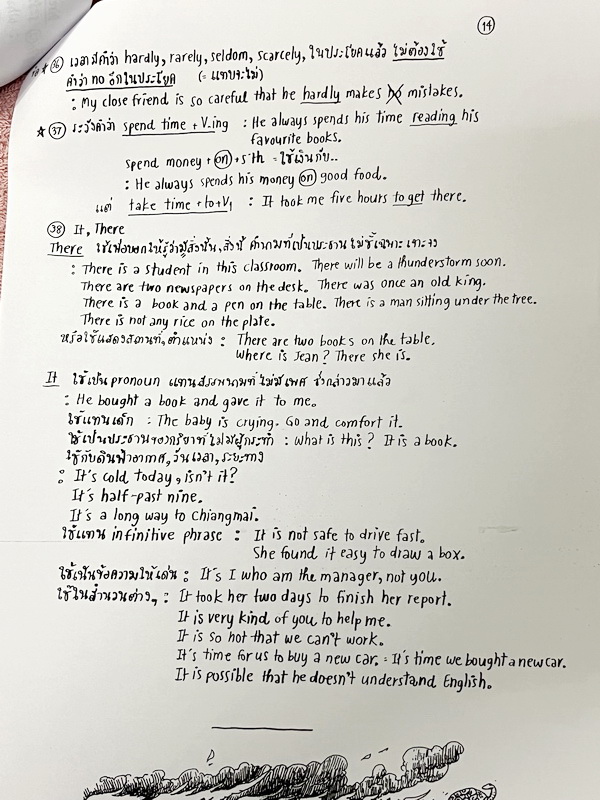 14
★ 36 เวลามีคำว่า hardly, rarely, seldom, scarcely, ในประโยคแล้ว ไม่ต้องใช้
คำว่า no อีกในประโยค (= แทบจะไม่)
: My close friend is so careful that he hardly makes no mistakes.
★ 37 ระวังคำว่า spend time + V-ing : He always spends his time reading his
favourite books.
spend money + on + s'th = ใช้เงินกับ..
: He always spends his money on good food.
แต่ take time + to + V1 : It took me five hours to get there.
38 It, There
There ใช้เพื่อบอกให้รู้ว่ามีสิ่งนั้น, สิ่งนี้ คำนามที่เป็นประธาน ไม่ชี้เฉพาะ เจาะจง
: There is a student in this classroom. There will be a thunderstorm soon.
There are two newspapers on the desk. There was once an old king.
There is a book and a pen on the table. There is a man sitting under the tree.
There is not any rice on the plate.
หรือใช้แสดงสถานที่, ตำแหน่ง : There are two books on the table.
Where is Jean? There she is.
It ใช้เป็น pronoun แทนสรรพนามที่ไม่มีเพศ ซึ่งกล่าวมาแล้ว
: He bought a book and gave it to me.
ใช้แทนเด็ก : The baby is crying. Go and comfort it.
ใช้เป็นประธานของกริยาที่ไม่มีผู้กระทำ : What is this? It is a book.
ใช้กับดินฟ้าอากาศ, วันเวลา, ระยะทาง
: It's cold today, isn't it?
It's half-past nine.
It's a long way to Chiangmai.
ใช้แทน infinitive phrase : It is not safe to drive fast.
She found it easy to draw a box.
ใช้เน้นข้อความให้เด่น : It's I who am the manager, not you.
ใช้ในสำนวนต่างๆ : It took her two days to finish her report.
It is very kind of you to help me.
It is so hot that we can't work.
It's time for us to buy a new car. = It's time we bought a new car.
It is possible that he doesn't understand English.